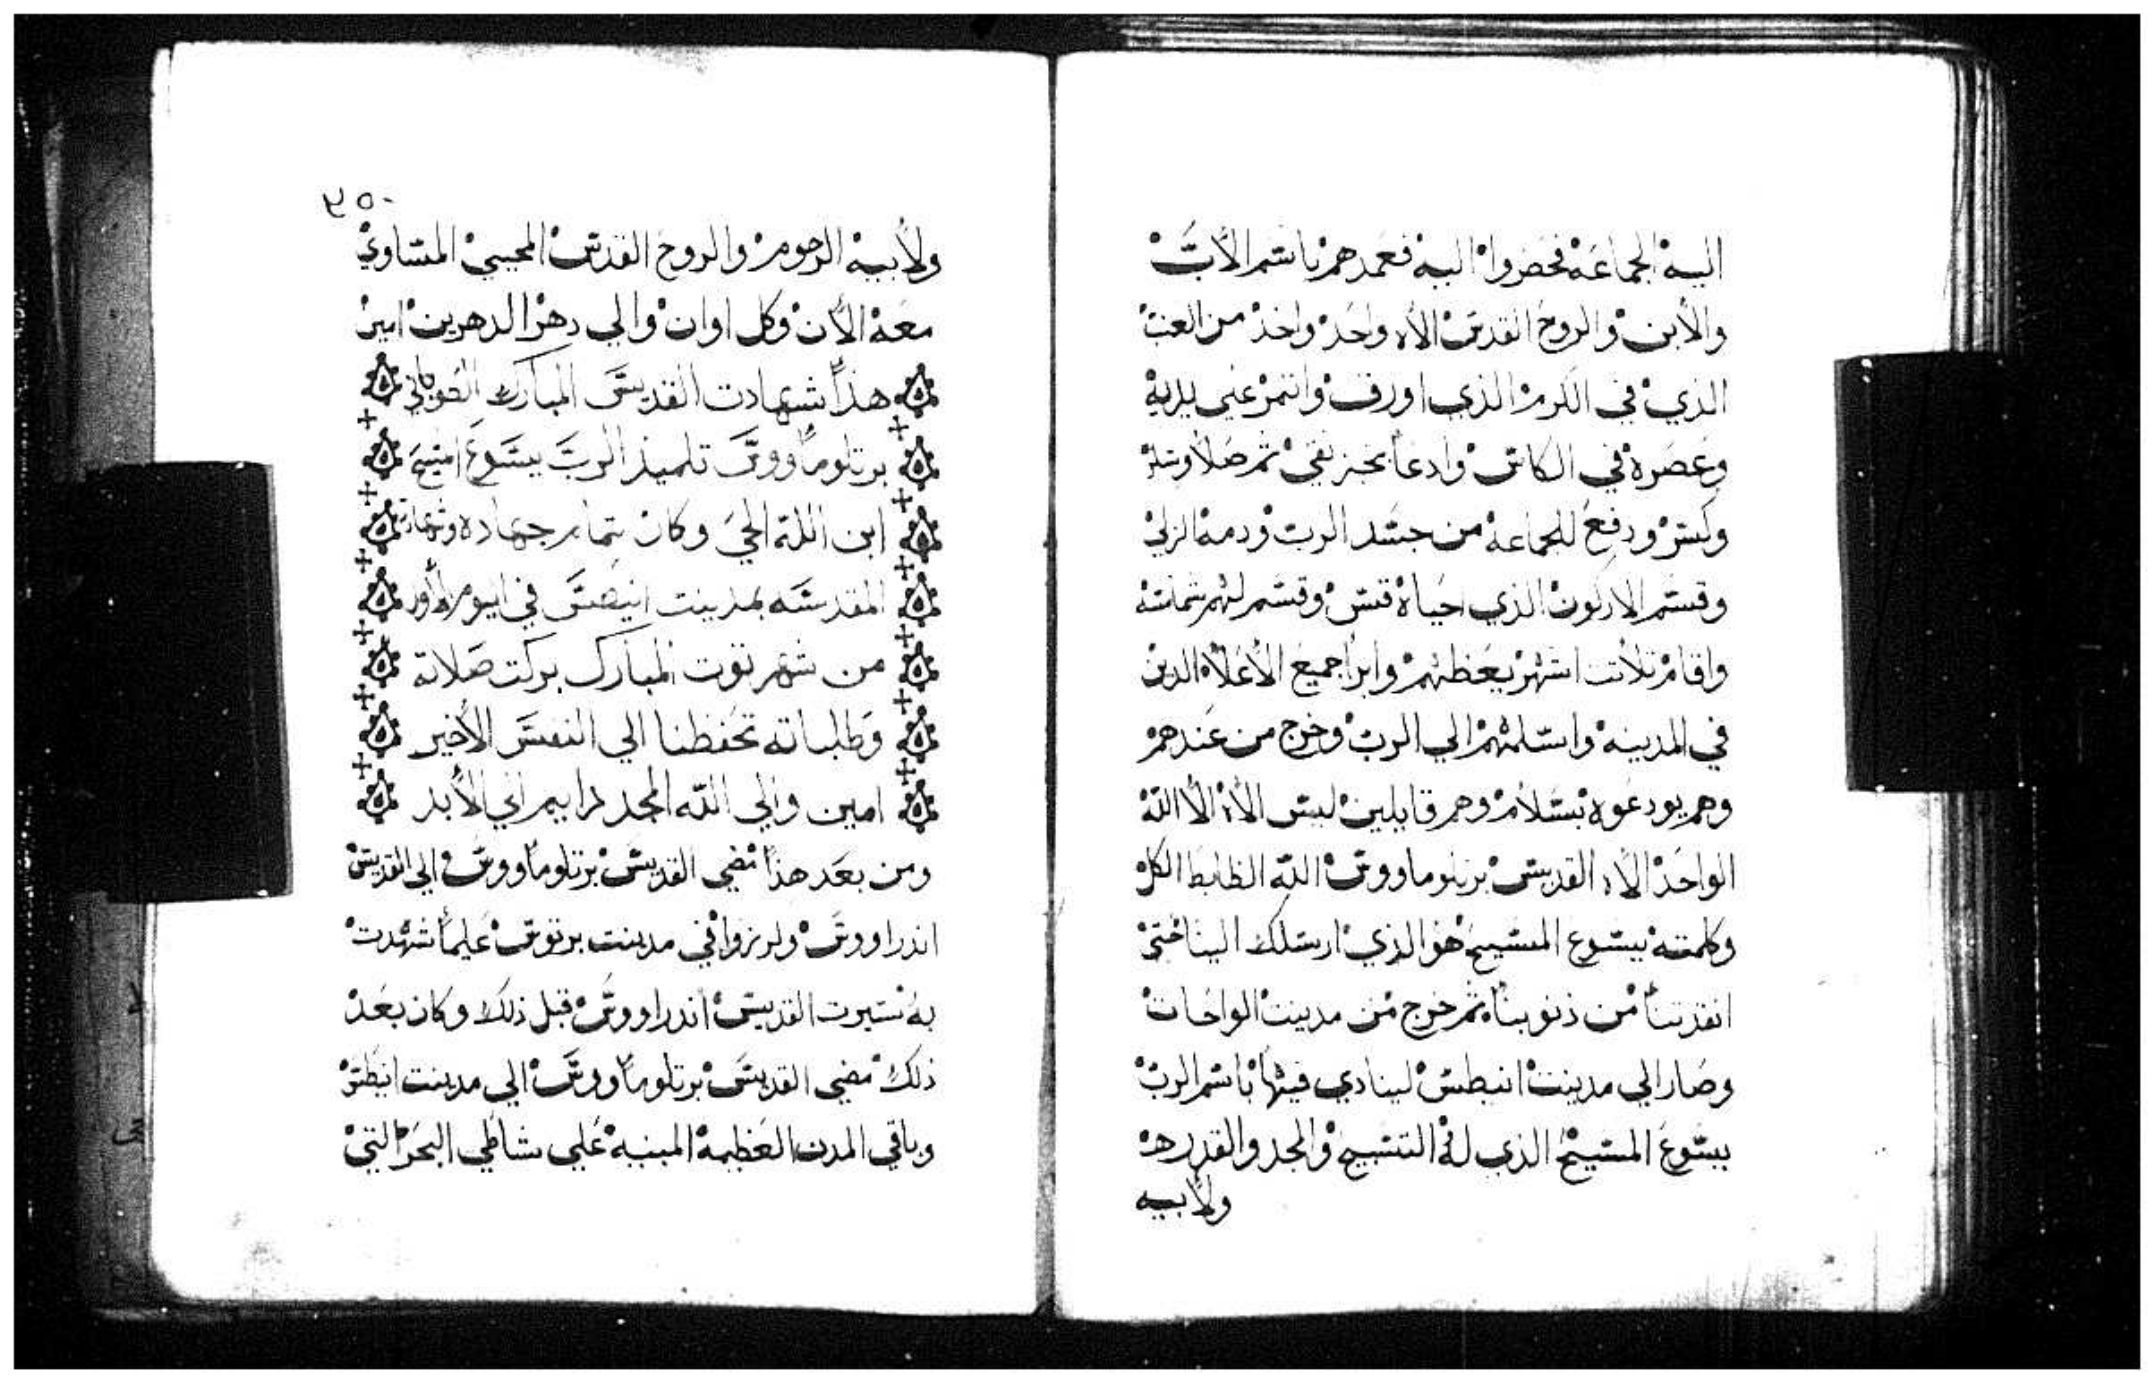 اليه الجماعه فحضروا اليه فعمدهم باسم الأب
والأبن والروح القدس الأه واحد واخد من العنب
الذي في الكرم الذي اورق واثمر علي يديه
وعصره في الكاس وادعا بخبز نقي ثم صلا وشكر
وكسر ودفع للجماعه من جسد الرب ودمه الزكي
وقسم الاركون الذي احياه قس وقسم لهم شمامسه
واقام تلأتت اشهر يعظهم وابرا جميع الأعلاه الدين
في المدينه واسلمهم الي الرب وخرج من عندهم
وهم يودعوه بسلام وهم قايلين ليس الأه الأ الله
الواحد الأه القديس برتلوماووس الله الظابط الكل
وكلمته يسوع المسيح هو الذي ارسلك الينا حتي
انقدتنا من ذنوبنا ثم خرج من مدينت الواحات
وصار الي مدينت انيطس لينادي فيها باسم الرب
يسوع المسيح الذي له التسبيح والمجد والقدره
ولأبيه
٢٥٠
ولأبيه الرحوم والروح القدس المحيي المساوي
معه الأن وكل اوان والي دهر الدهرين امين
هذا شهادت القديس المبارك الطوباني
برتلوماووس تلميذ الرب يسوع المسيح
ابن الله الحي وكان تمام جهاده وشهادته
المقدسه بمدينت انيطس في اليوم الأول
من شهر توت المبارك بركت صلاته
وطلباته تحفظنا الي النفس الأخير
امين والي الله المجد دايم الي الأبد
ومن بعد هذا مضي القديس برتلوماووس الي القديس
اندراووس ولم يزوا في مدينت برتوس علي ما شهدت
به سيرت القديس اندراووس قبل ذلك وكان بعد
ذلك مضي القديس برتلوماووس الي مدينت انيطس
وباقي المدن العظيمه المبنيه علي شاطي البحر التي